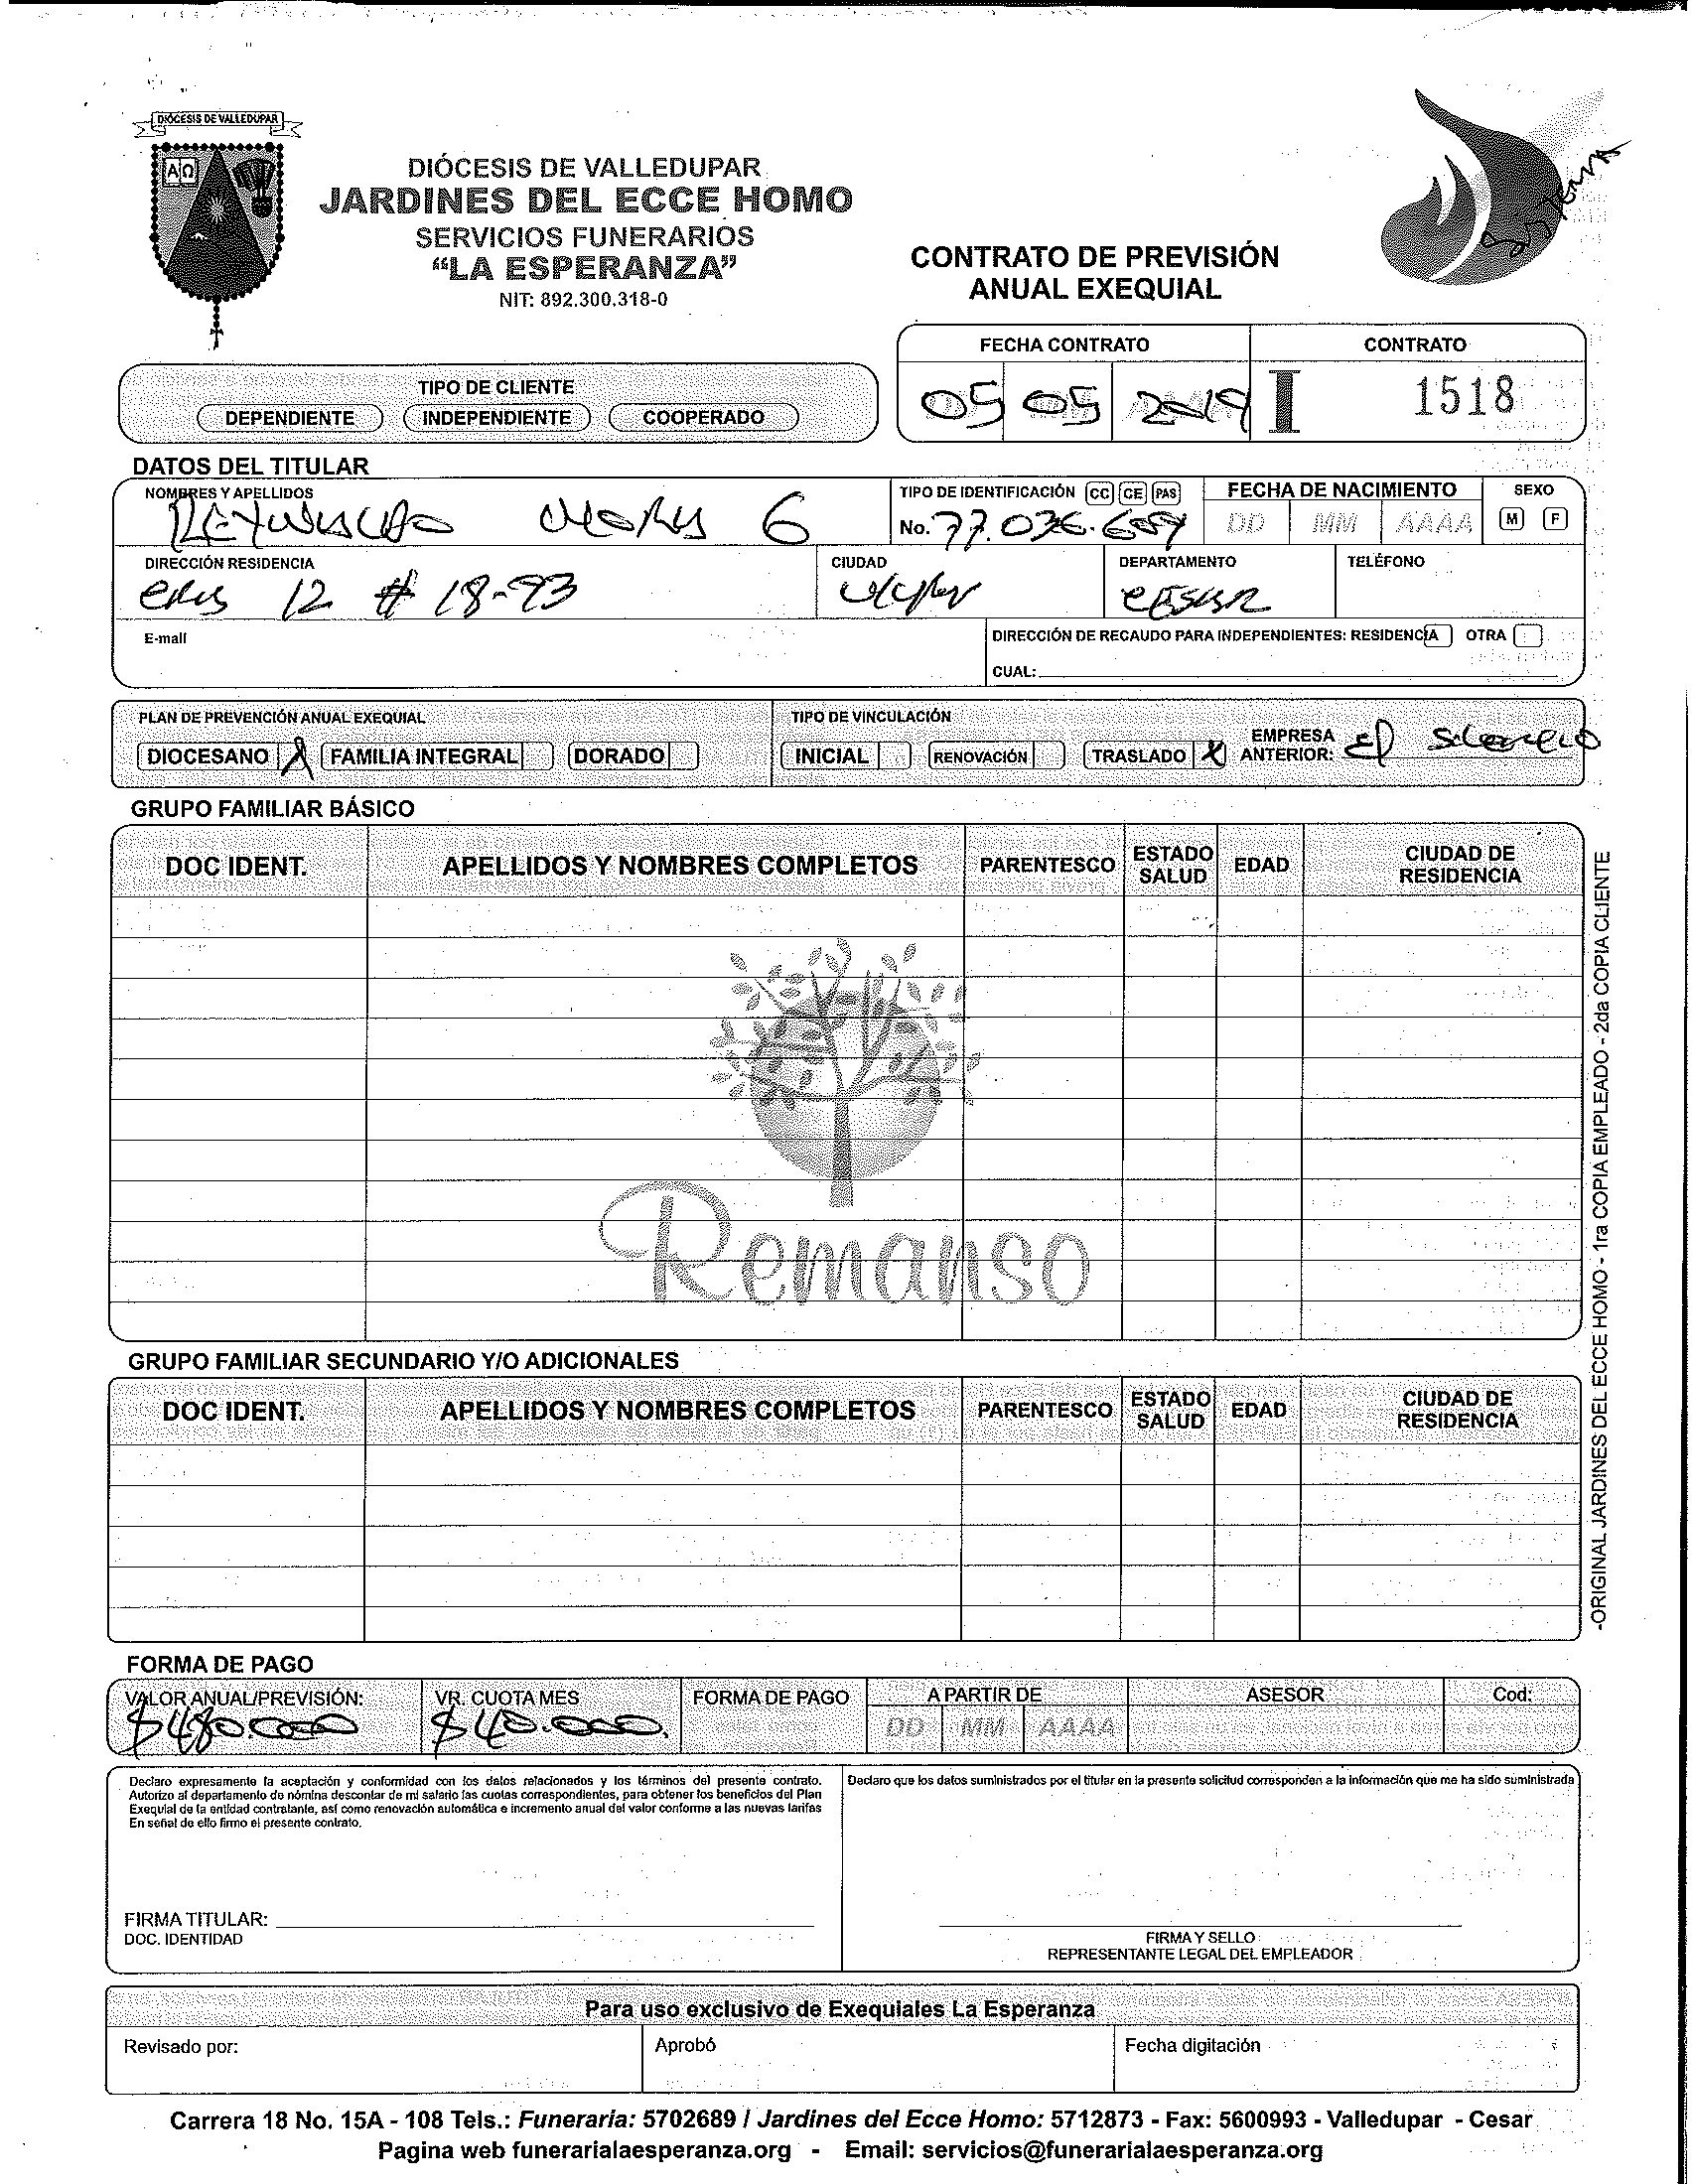 DIÓCESIS DE VALLEDUPAR
A Ω
DIÓCESIS DE VALLEDUPAR
JARDINES DEL ECCE HOMO
SERVICIOS FUNERARIOS
“LA ESPERANZA”
NIT: 892.300.318-0
CONTRATO DE PREVISIÓN
ANUAL EXEQUIAL
FECHA CONTRATO CONTRATO
05 05 2019 I 1518
TIPO DE CLIENTE
DEPENDIENTE INDEPENDIENTE COOPERADO
DATOS DEL TITULAR
NOMBRES Y APELLIDOS TIPO DE IDENTIFICACIÓN CC CE PAS FECHA DE NACIMIENTO SEXO
6 No. 77.036.659 DD MM AAAA M F
DIRECCIÓN RESIDENCIA CIUDAD DEPARTAMENTO TELÉFONO
12 # 18-93 CESAR
E-mail DIRECCIÓN DE RECAUDO PARA INDEPENDIENTES: RESIDENCIA OTRA
CUAL:
PLAN DE PREVENCIÓN ANUAL EXEQUIAL TIPO DE VINCULACIÓN
DIOCESANO X FAMILIA INTEGRAL DORADO INICIAL RENOVACIÓN TRASLADO X EMPRESA ANTERIOR: El Silencio
GRUPO FAMILIAR BÁSICO
DOC IDENT. APELLIDOS Y NOMBRES COMPLETOS PARENTESCO ESTADO SALUD EDAD CIUDAD DE RESIDENCIA
Remanso
GRUPO FAMILIAR SECUNDARIO Y/O ADICIONALES
DOC IDENT. APELLIDOS Y NOMBRES COMPLETOS PARENTESCO ESTADO SALUD EDAD CIUDAD DE RESIDENCIA
-ORIGINAL JARDINES DEL ECCE HOMO - 1ra COPIA EMPLEADO - 2da COPIA CLIENTE
FORMA DE PAGO
VALOR ANUAL/PREVISIÓN: VR. CUOTA MES FORMA DE PAGO A PARTIR DE ASESOR Cod:
$480.000 $40.000. DD MM AAAA
Declaro expresamente la aceptación y conformidad con los datos relacionados y los términos del presente contrato.
Autorizo al departamento de nómina descontar de mi salario las cuotas correspondientes, para obtener los beneficios del Plan
Exequial de la entidad contratante, así como renovación automática e incremento anual del valor conforme a las nuevas tarifas
En señal de ello firmo el presente contrato.
Declaro que los datos suministrados por el titular en la presente solicitud corresponden a la información que me ha sido suministrada
FIRMA TITULAR:
DOC. IDENTIDAD
FIRMA Y SELLO
REPRESENTANTE LEGAL DEL EMPLEADOR
Para uso exclusivo de Exequiales La Esperanza
Revisado por: Aprobó Fecha digitación
Carrera 18 No. 15A - 108 Tels.: Funeraria: 5702689 / Jardines del Ecce Homo: 5712873 - Fax: 5600993 - Valledupar - Cesar
Pagina web funerarialaesperanza.org - Email: servicios@funerarialaesperanza.org